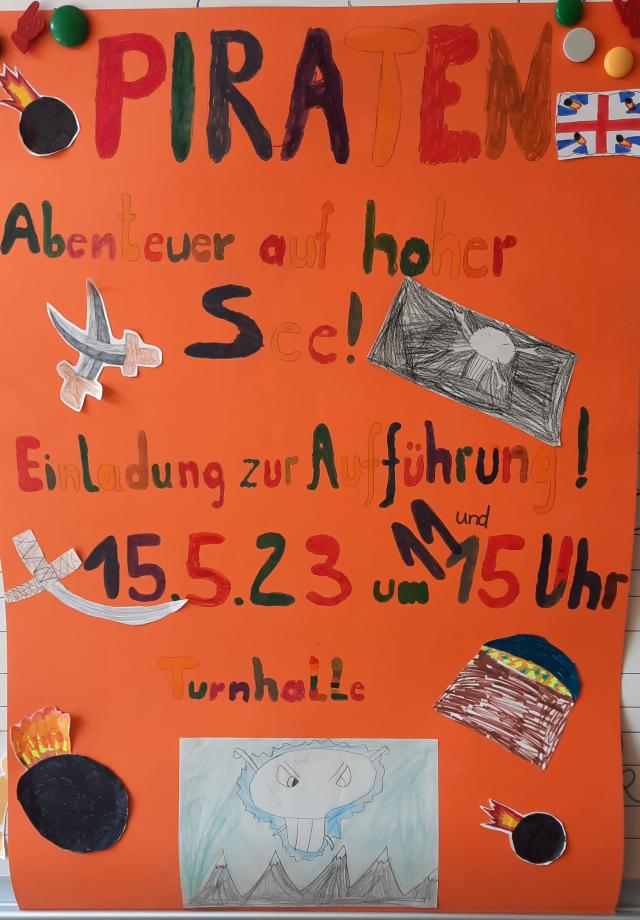 PIRATEN
Abenteuer auf hoher
See!
Einladung zur Aufführung!
15.5.23 um 11 und 15 Uhr
Turnhalle